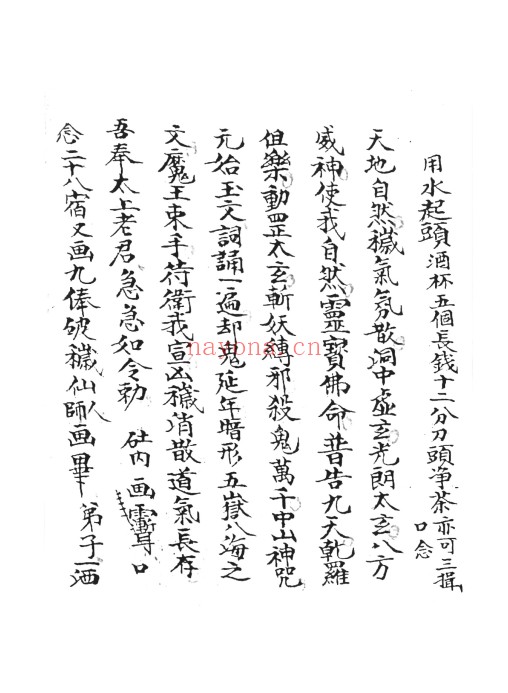 用水起頭酒杯五個長錢十二分刀頭净茶亦可三揖口念
天地自然穢氣氛散洞中虛玄光朗太玄八方
威神使我自然靈寶佛命普告九天乾羅
但樂動罡太玄斬妖縛邪殺鬼萬千中山神咒
元始玉文詞誦一遍却鬼延年暗形五嶽八海之
文魔王束手待衛我宣凶穢消散道氣長存
吾奉太上老君急急如令勅 砒内画 口
念二十八宿又画九俸破穢仙師人画畢 弟子一洒
nayona.cn